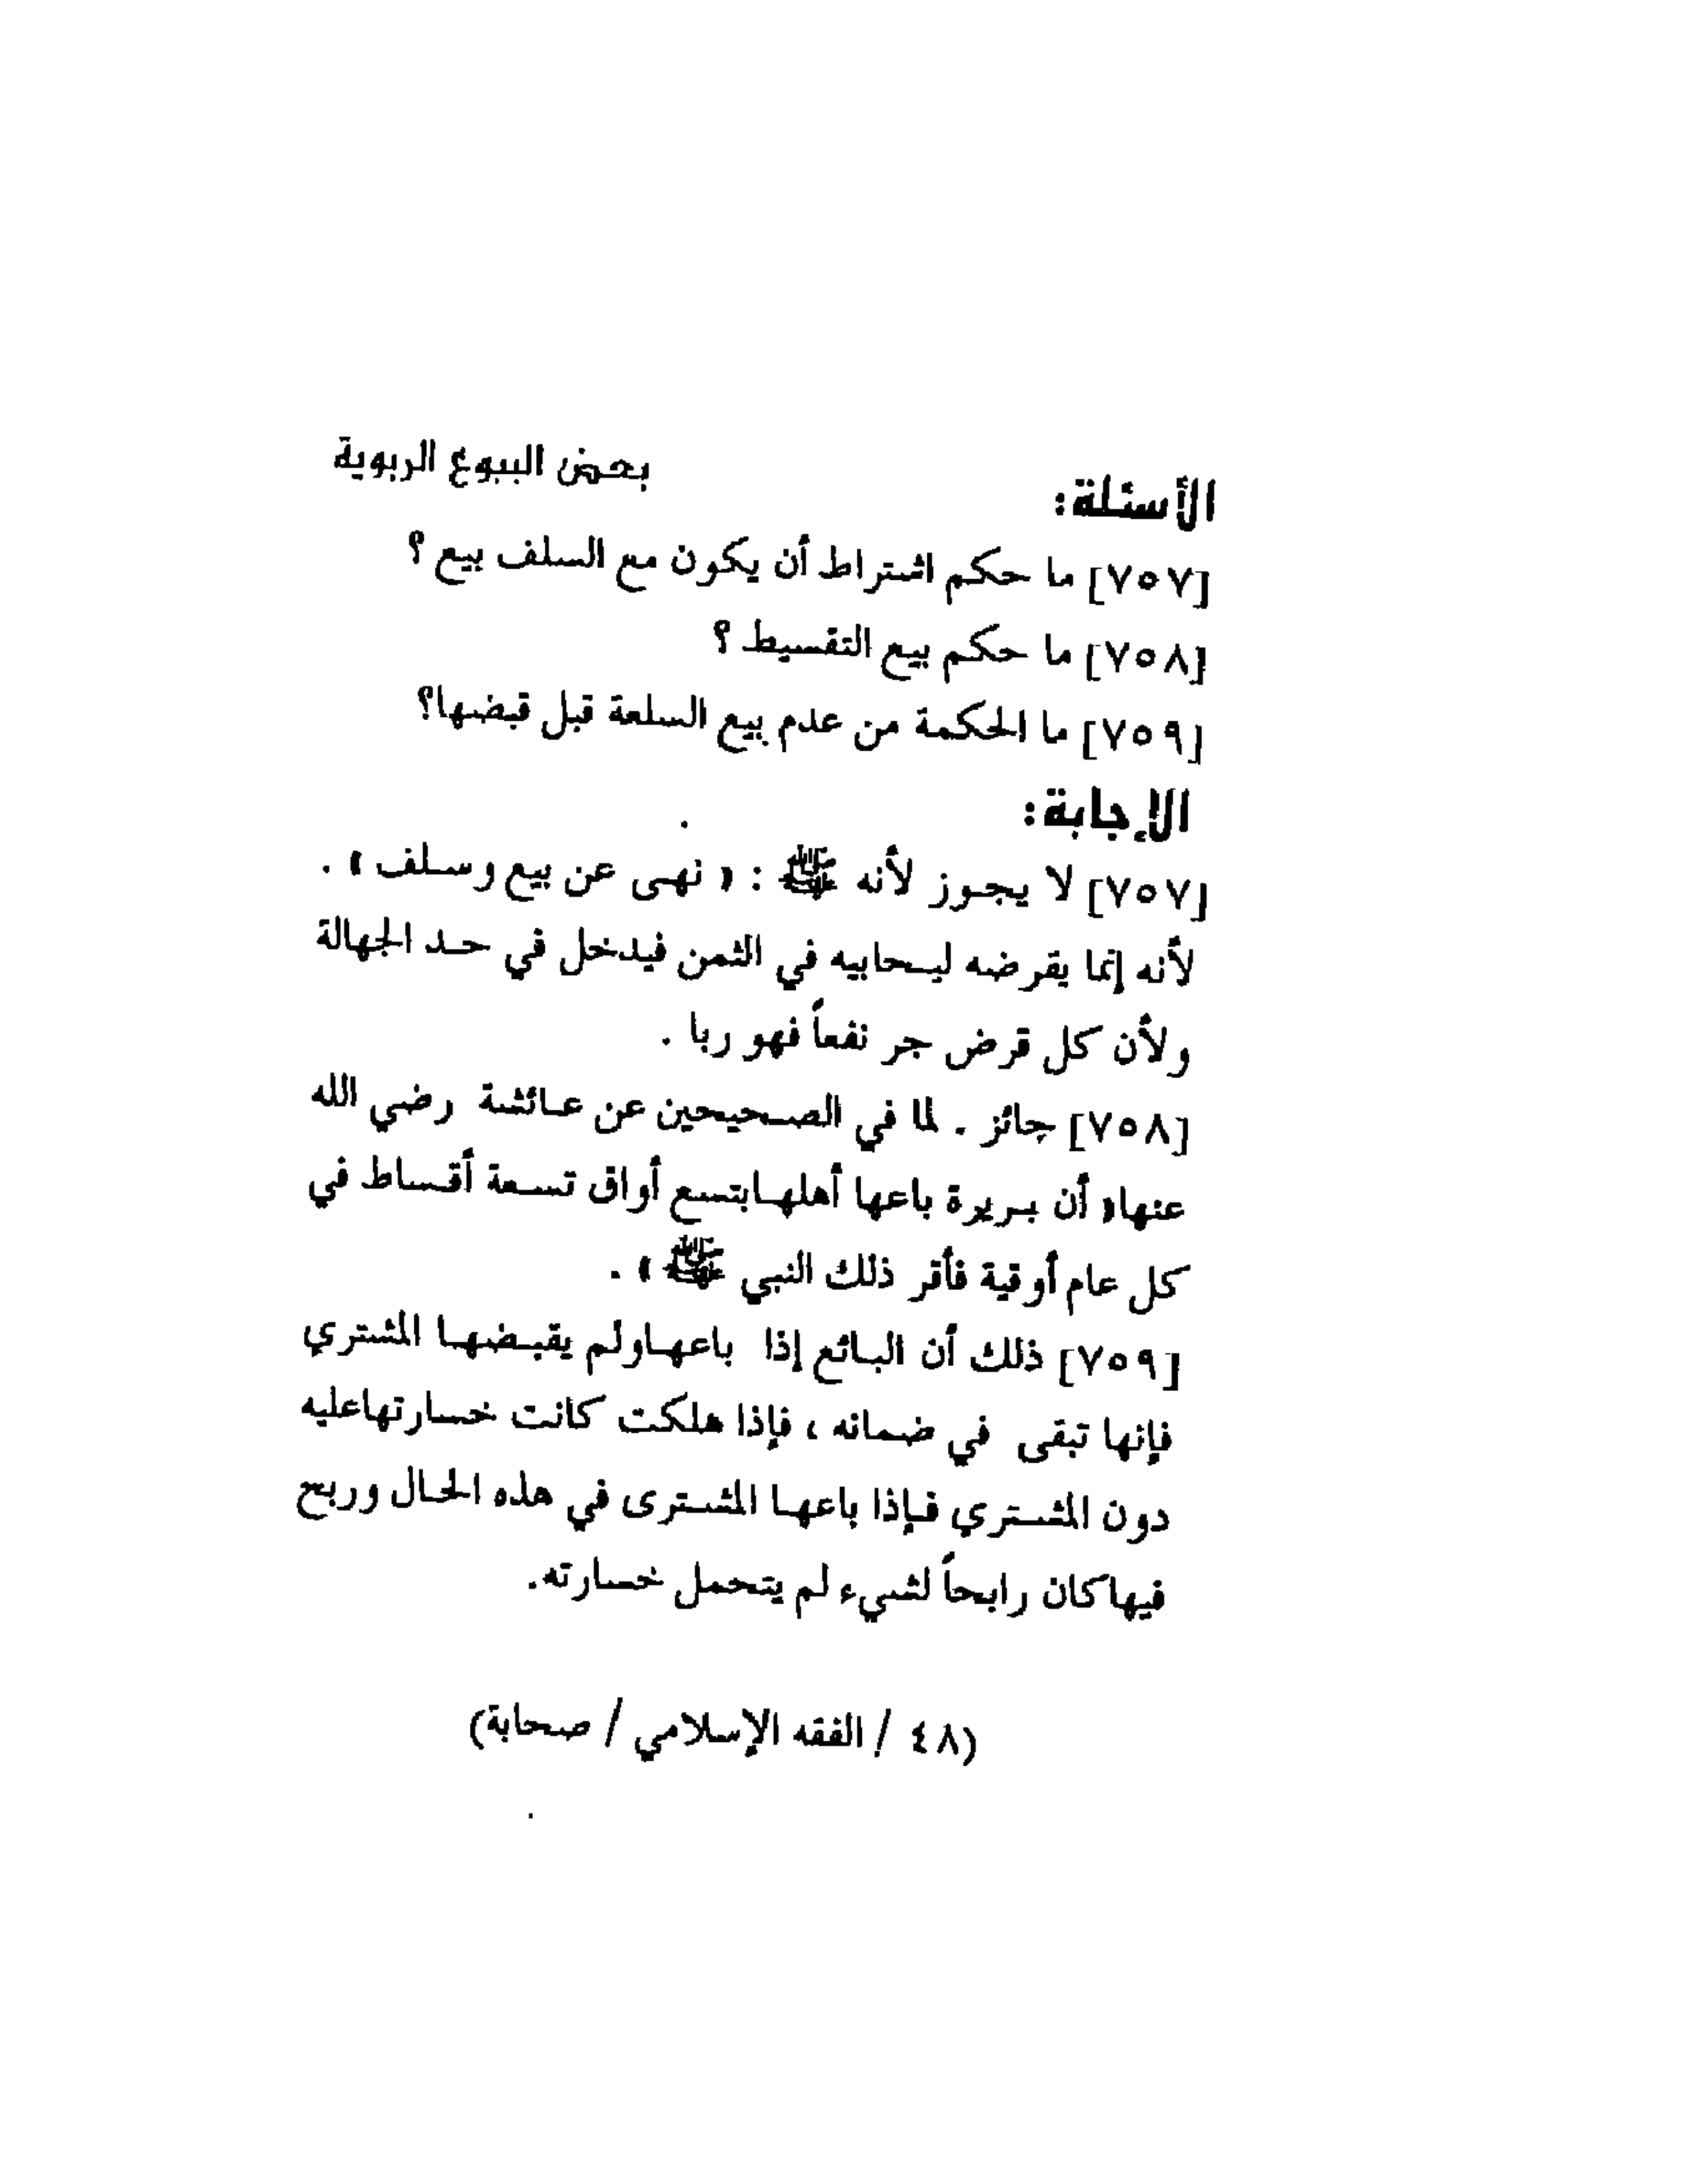 بعض البيوع الربوية
الأسئلة:
[٧٥٧] ما حكم اشتراط أن يكون مع السلف بيع ؟
[٧٥٨] ما حكم بيع التقسيط ؟
[٧٥٩] ما الحكمة من عدم بيع السلعة قبل قبضها؟
الإجابة:
[٧٥٧] لا يجوز لأنه ﷺ : « نهى عن بيع وسلف » .
لأنه إنما يقرضه ليحابيه في الثمن فيدخل في حد الجهالة
ولأن كل قرض جر نفعاً فهو ربا .
[٧٥٨] جائز . لما في الصحيحين عن عائشة رضي الله
عنها« أن بريرة باعها أهلهابتسع أواق تسعة أقساط في
كل عام أوقية فأقر ذلك النبي ﷺ » .
[٧٥٩] ذلك أن البائع إذا باعهاولم يقبضها المشتري
فإنها تبقى في ضمانه ، فإذا هلكت كانت خسارتهاعليه
دون المشتري فإذا باعها المشترى في هذه الحال وربح
فيهاكان رابحاً لشيء لم يتحمل خسارته.
(٤٨ / الفقه الإسلامي / صحابة)